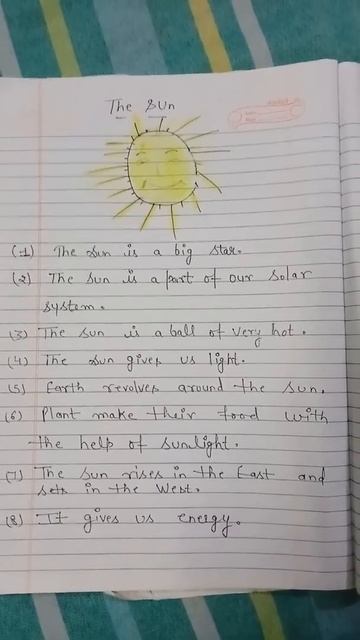 The Sun
(1) The Sun is a big star.
(2) The Sun is a part of our solar
system.
(3) The sun is a ball of very hot.
(4) The sun gives us light.
(5) Earth revolves around the sun.
(6) Plant make their food with
the help of sunlight.
(7) The sun rises in the East and
sets in the West.
(8) It gives us energy.